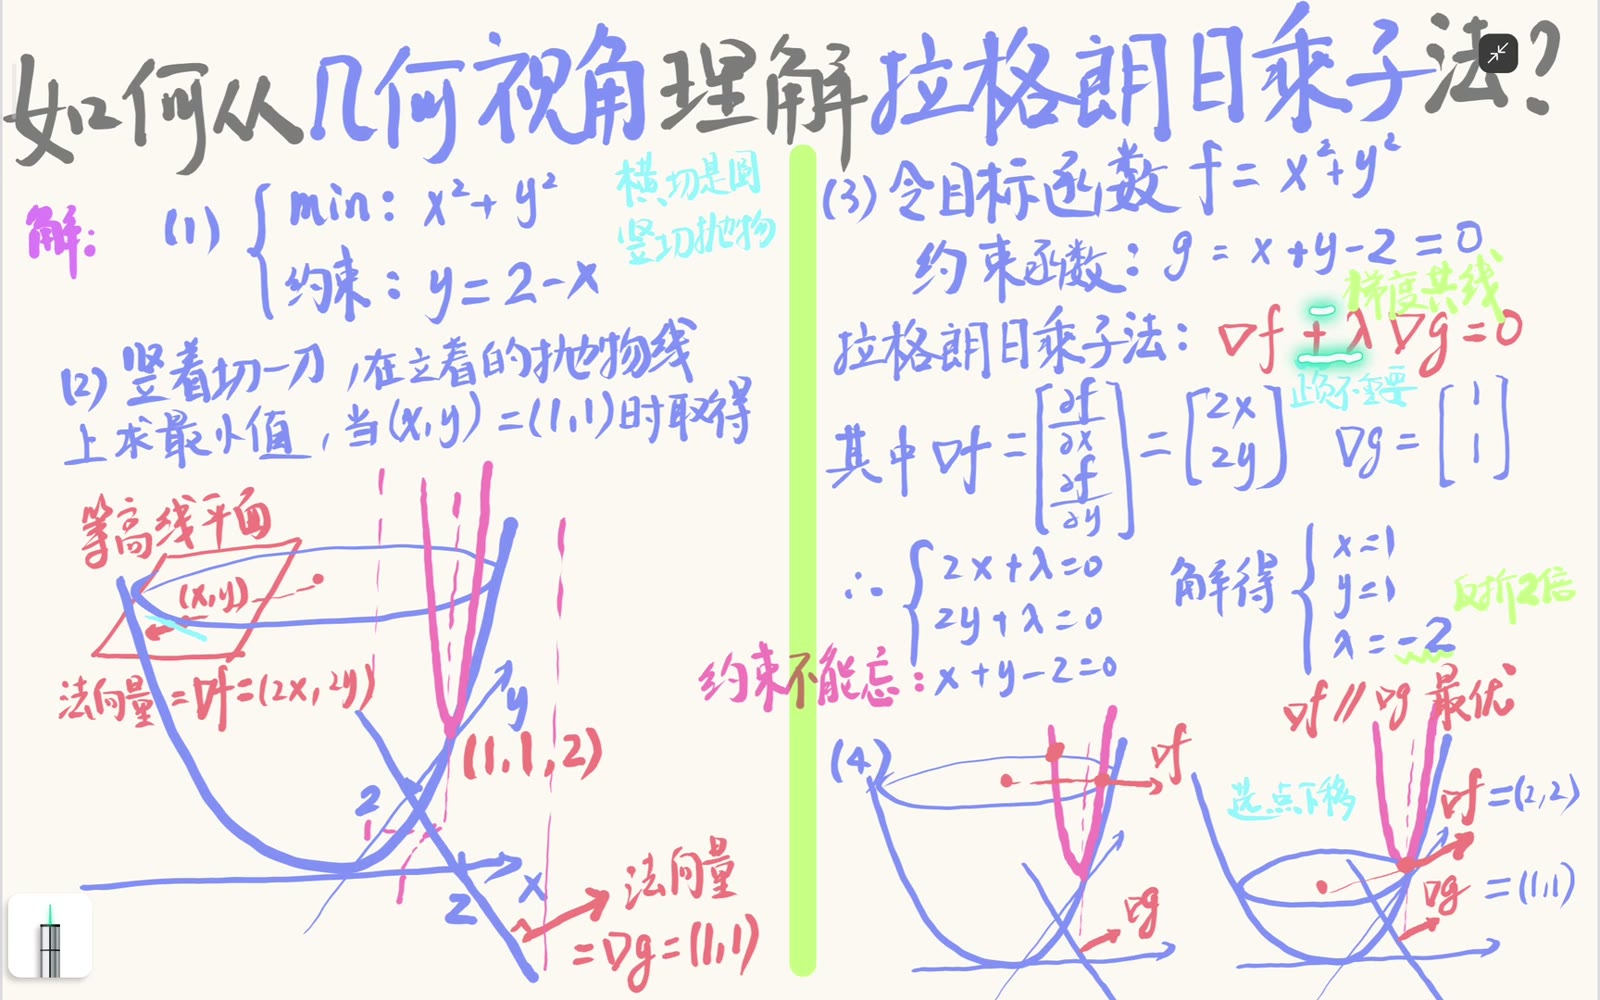 如何从几何视角理解拉格朗日乘子法?
解:
(1) { min: x²+y²
约束: y=2-x
横切是圆
竖切抛物
(2) 竖着切一刀,在立着的抛物线
上求最小值,当(x,y)=(1,1)时取得
等高线平面
(x,y)
法向量=∇f=(2x,2y)
y
(1,1,2)
2
1
x
2
法向量
=∇g=(1,1)
(3) 令目标函数 f=x²+y²
约束函数: g=x+y-2=0
梯度共线
拉格朗日乘子法: ∇f ∓ λ∇g=0
正负不重要
其中 ∇f=[∂f/∂x ∂f/∂y]=[2x 2y] ∇g=[1 1]
∴ { 2x+λ=0
2y+λ=0
约束不能忘: x+y-2=0
解得 { x=1
y=1
λ=-2
反折2倍
∇f∥∇g 最优
(4)
∇f
∇g
选点下移
∇f=(2,2)
∇g=(1,1)